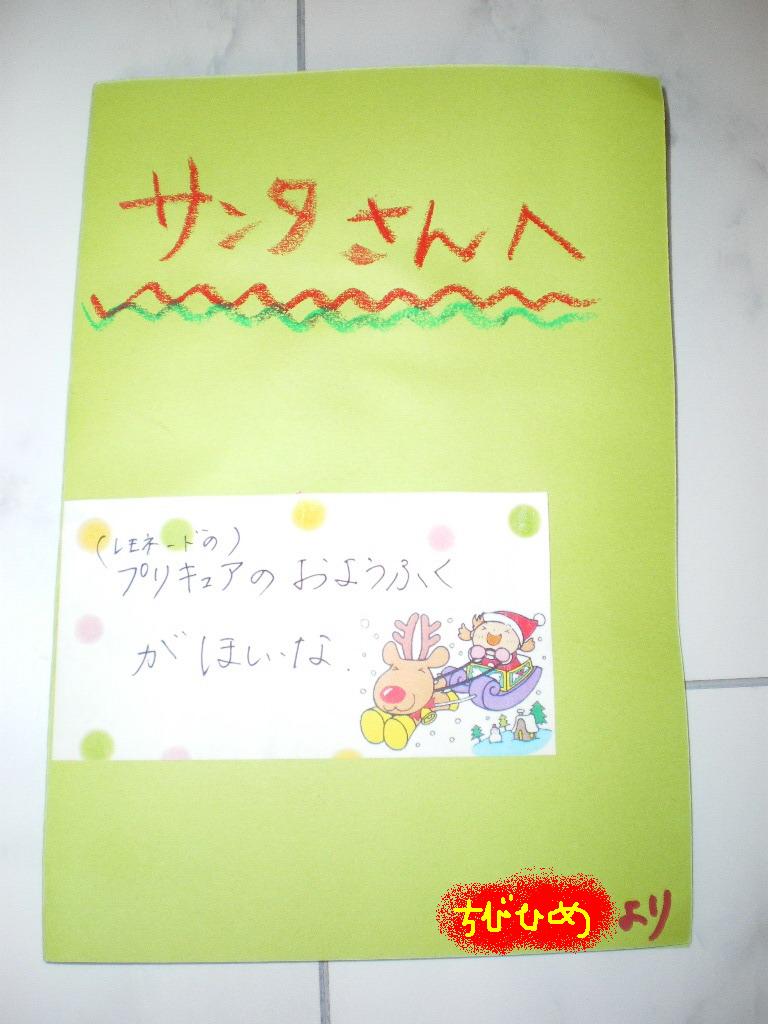 サンタさんへ
(レモネードの)
プリキュアのおようふく
がほしいな.
ちびひめより